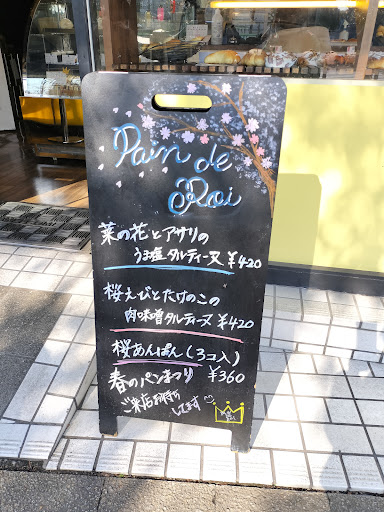 Pain de
Roi
菜の花とアサリの
うま塩タルティーヌ ¥420
桜えびとたけのこの
肉味噌タルティーヌ ¥420
桜あんぱん(3コ入)
春のパンまつり ¥360
ご来店お待ち
してます♡